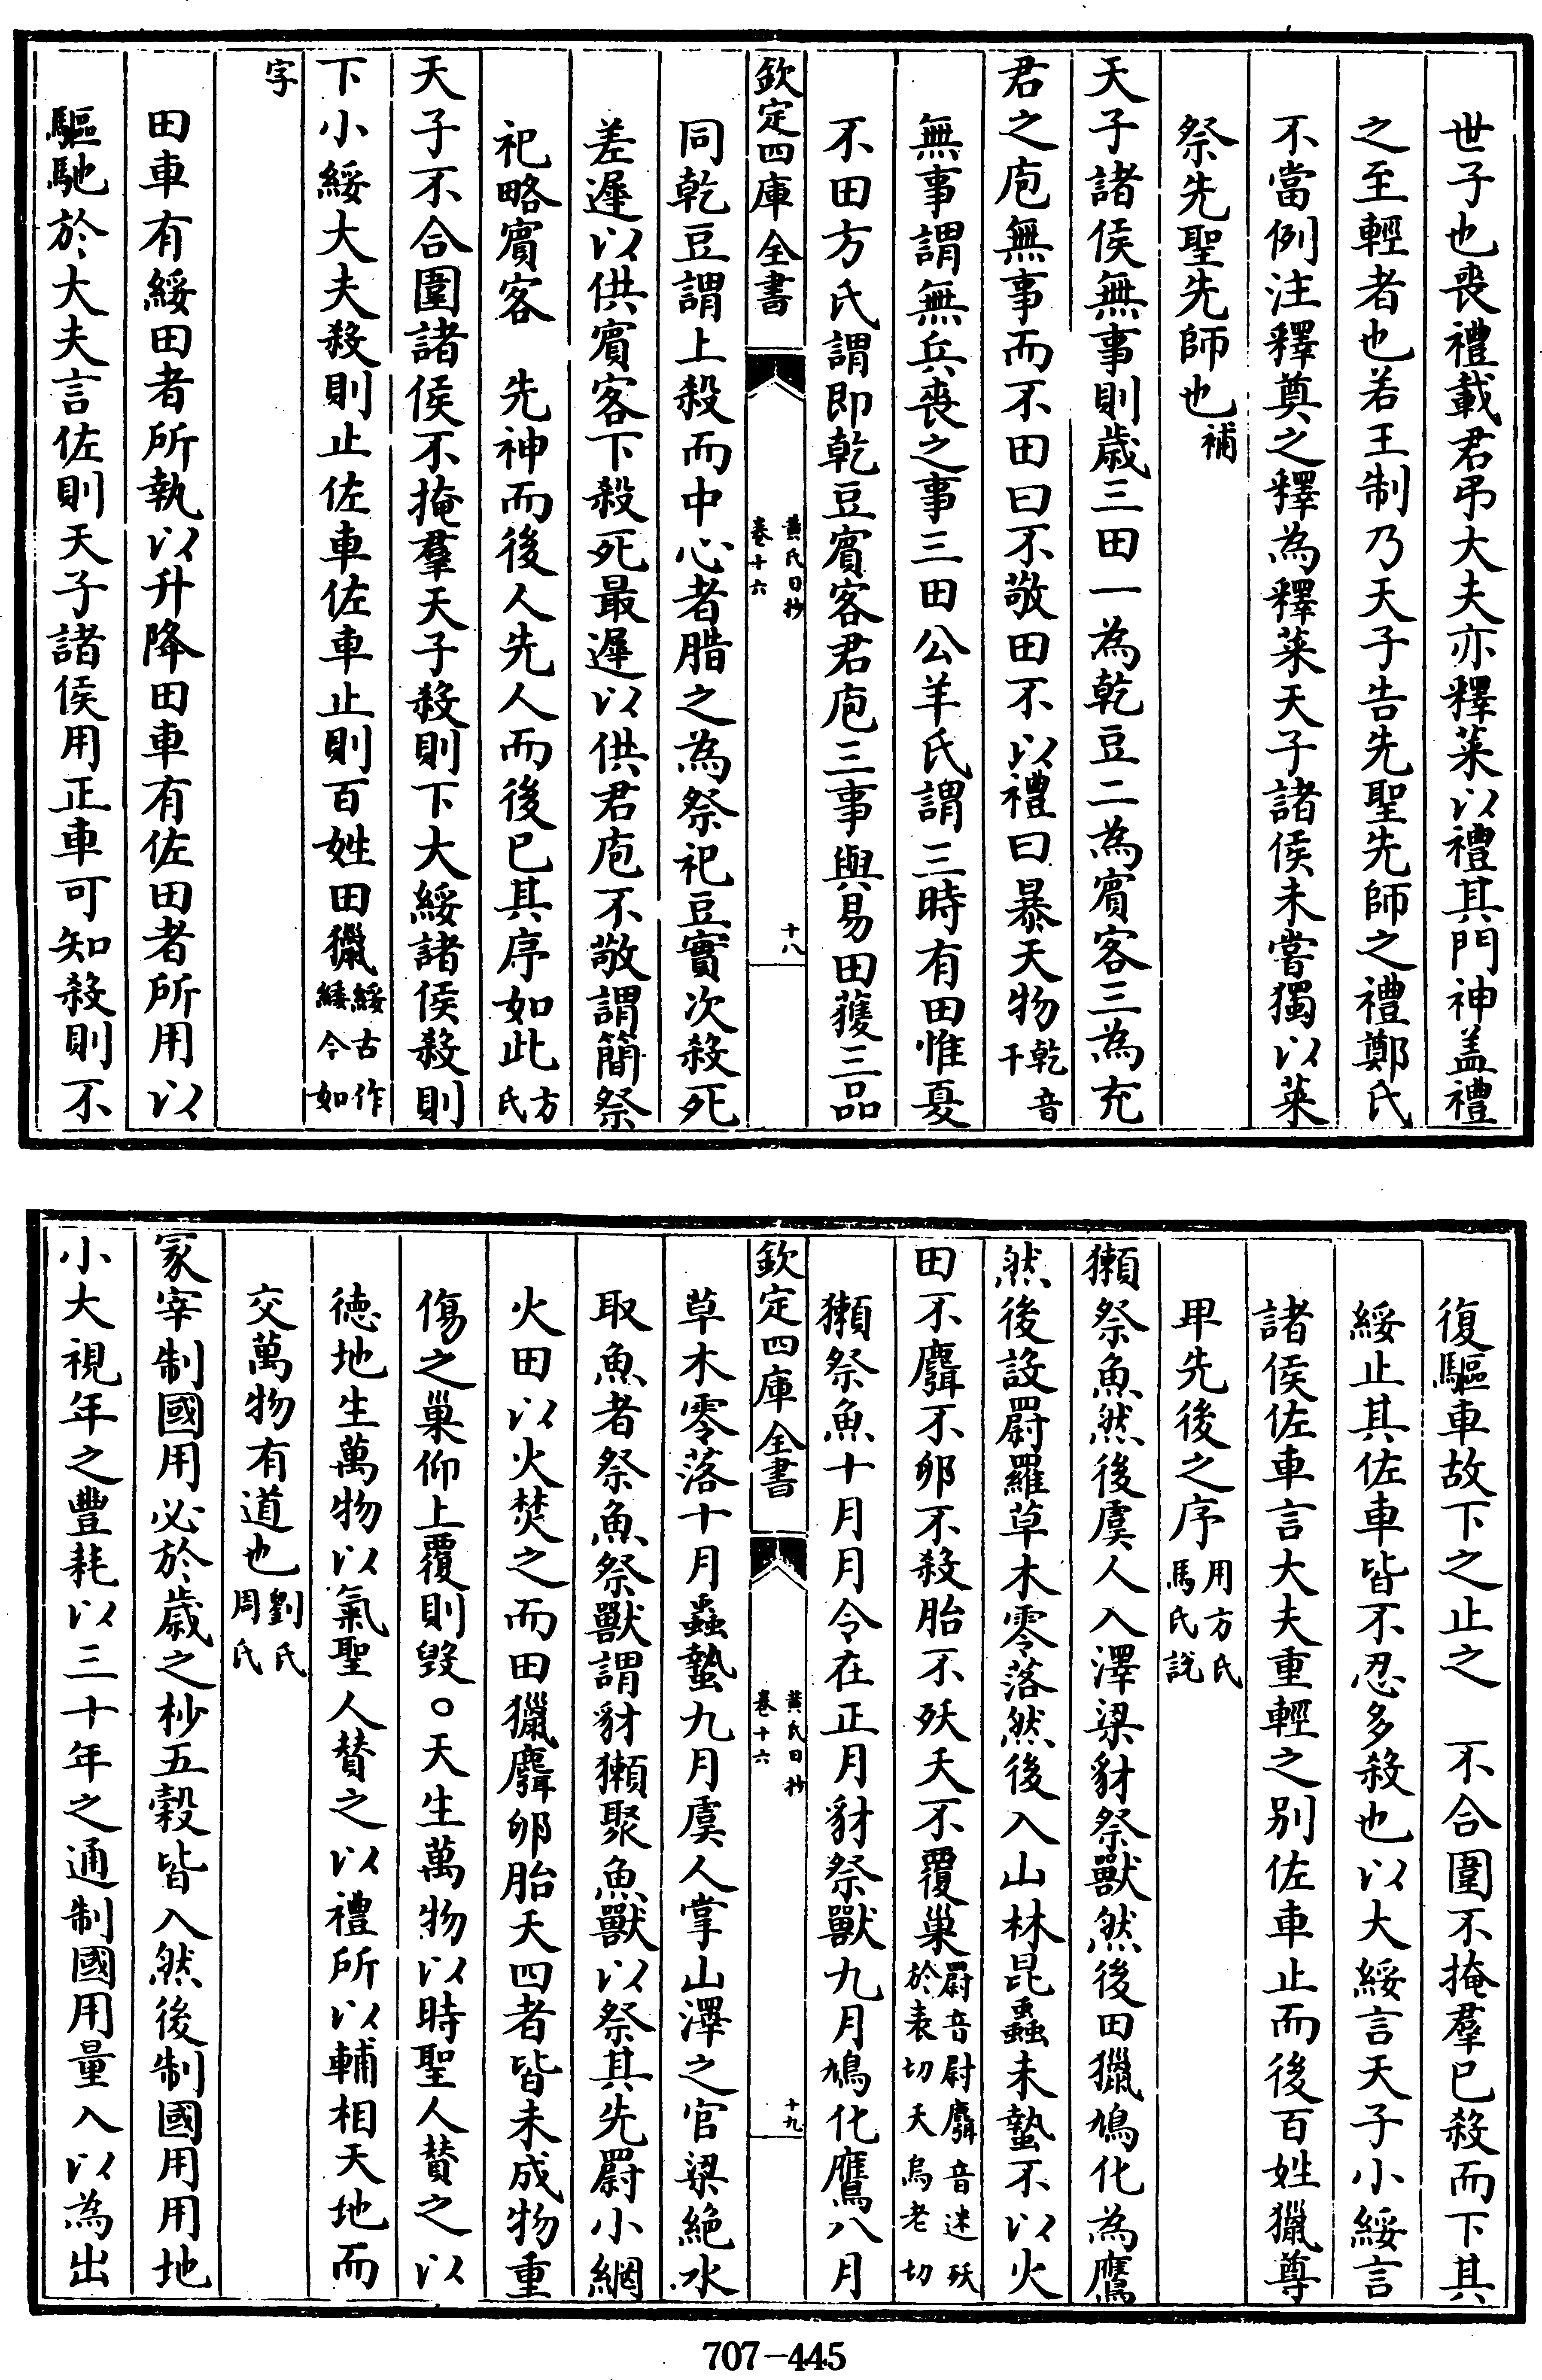 世子也喪禮載君弔大夫亦釋菜以禮其門神盖禮
之至輕者也若王制乃天子告先聖先師之禮鄭氏
不當例注釋奠之釋為釋菜天子諸侯未嘗獨以菜
祭先聖先師也補
天子諸侯無事則歲三田一為乾豆二為賓客三為充
君之庖無事而不田曰不敬田不以禮曰暴天物乾音干
無事謂無兵喪之事三田公羊氏謂三時有田惟夏
不田方氏謂即乾豆賓客君庖三事與易田獲三品
欽定四庫全書 黃氏日抄 卷十六 十八
同乾豆謂上殺而中心者腊之為祭祀豆實次殺死
差遲以供賓客下殺死最遲以供君庖不敬謂簡祭
祀略賓客 先神而後人先人而後已其序如此方氏
天子不合圍諸侯不掩羣天子殺則下大綏諸侯殺則
下小綏大夫殺則止佐車佐車止則百姓田獵綏古作緌今如
字
田車有綏田者所執以升降田車有佐田者所用以
驅馳於大夫言佐則天子諸侯用正車可知殺則不
復驅車故下之止之 不合圍不掩羣已殺而下其
綏止其佐車皆不忍多殺也以大綏言天子小綏言
諸侯佐車言大夫重輕之别佐車止而後百姓獵尊
卑先後之序用方氏馬氏說
獺祭魚然後虞人入澤梁豺祭獸然後田獵鳩化為鷹
然後設罻羅草木零落然後入山林昆蟲未蟄不以火
田不麛不卵不殺胎不殀夭不覆巢罻音尉麛音迷殀於表切夭烏老切
獺祭魚十月月令在正月豺祭獸九月鳩化鷹八月
欽定四庫全書 黃氏日抄 卷十六 十九
草木零落十月蟲蟄九月虞人掌山澤之官梁絶水
取魚者祭魚祭獸謂豺獺聚魚獸以祭其先罻小網
火田以火焚之而田獵麛卵胎夭四者皆未成物重
傷之巢仰上覆則毀○天生萬物以時聖人賛之以
徳地生萬物以氣聖人賛之以禮所以輔相天地而
交萬物有道也劉氏周氏
冡宰制國用必於歲之杪五榖皆入然後制國用用地
小大視年之豐耗以三十年之通制國用量入以為出
707-445